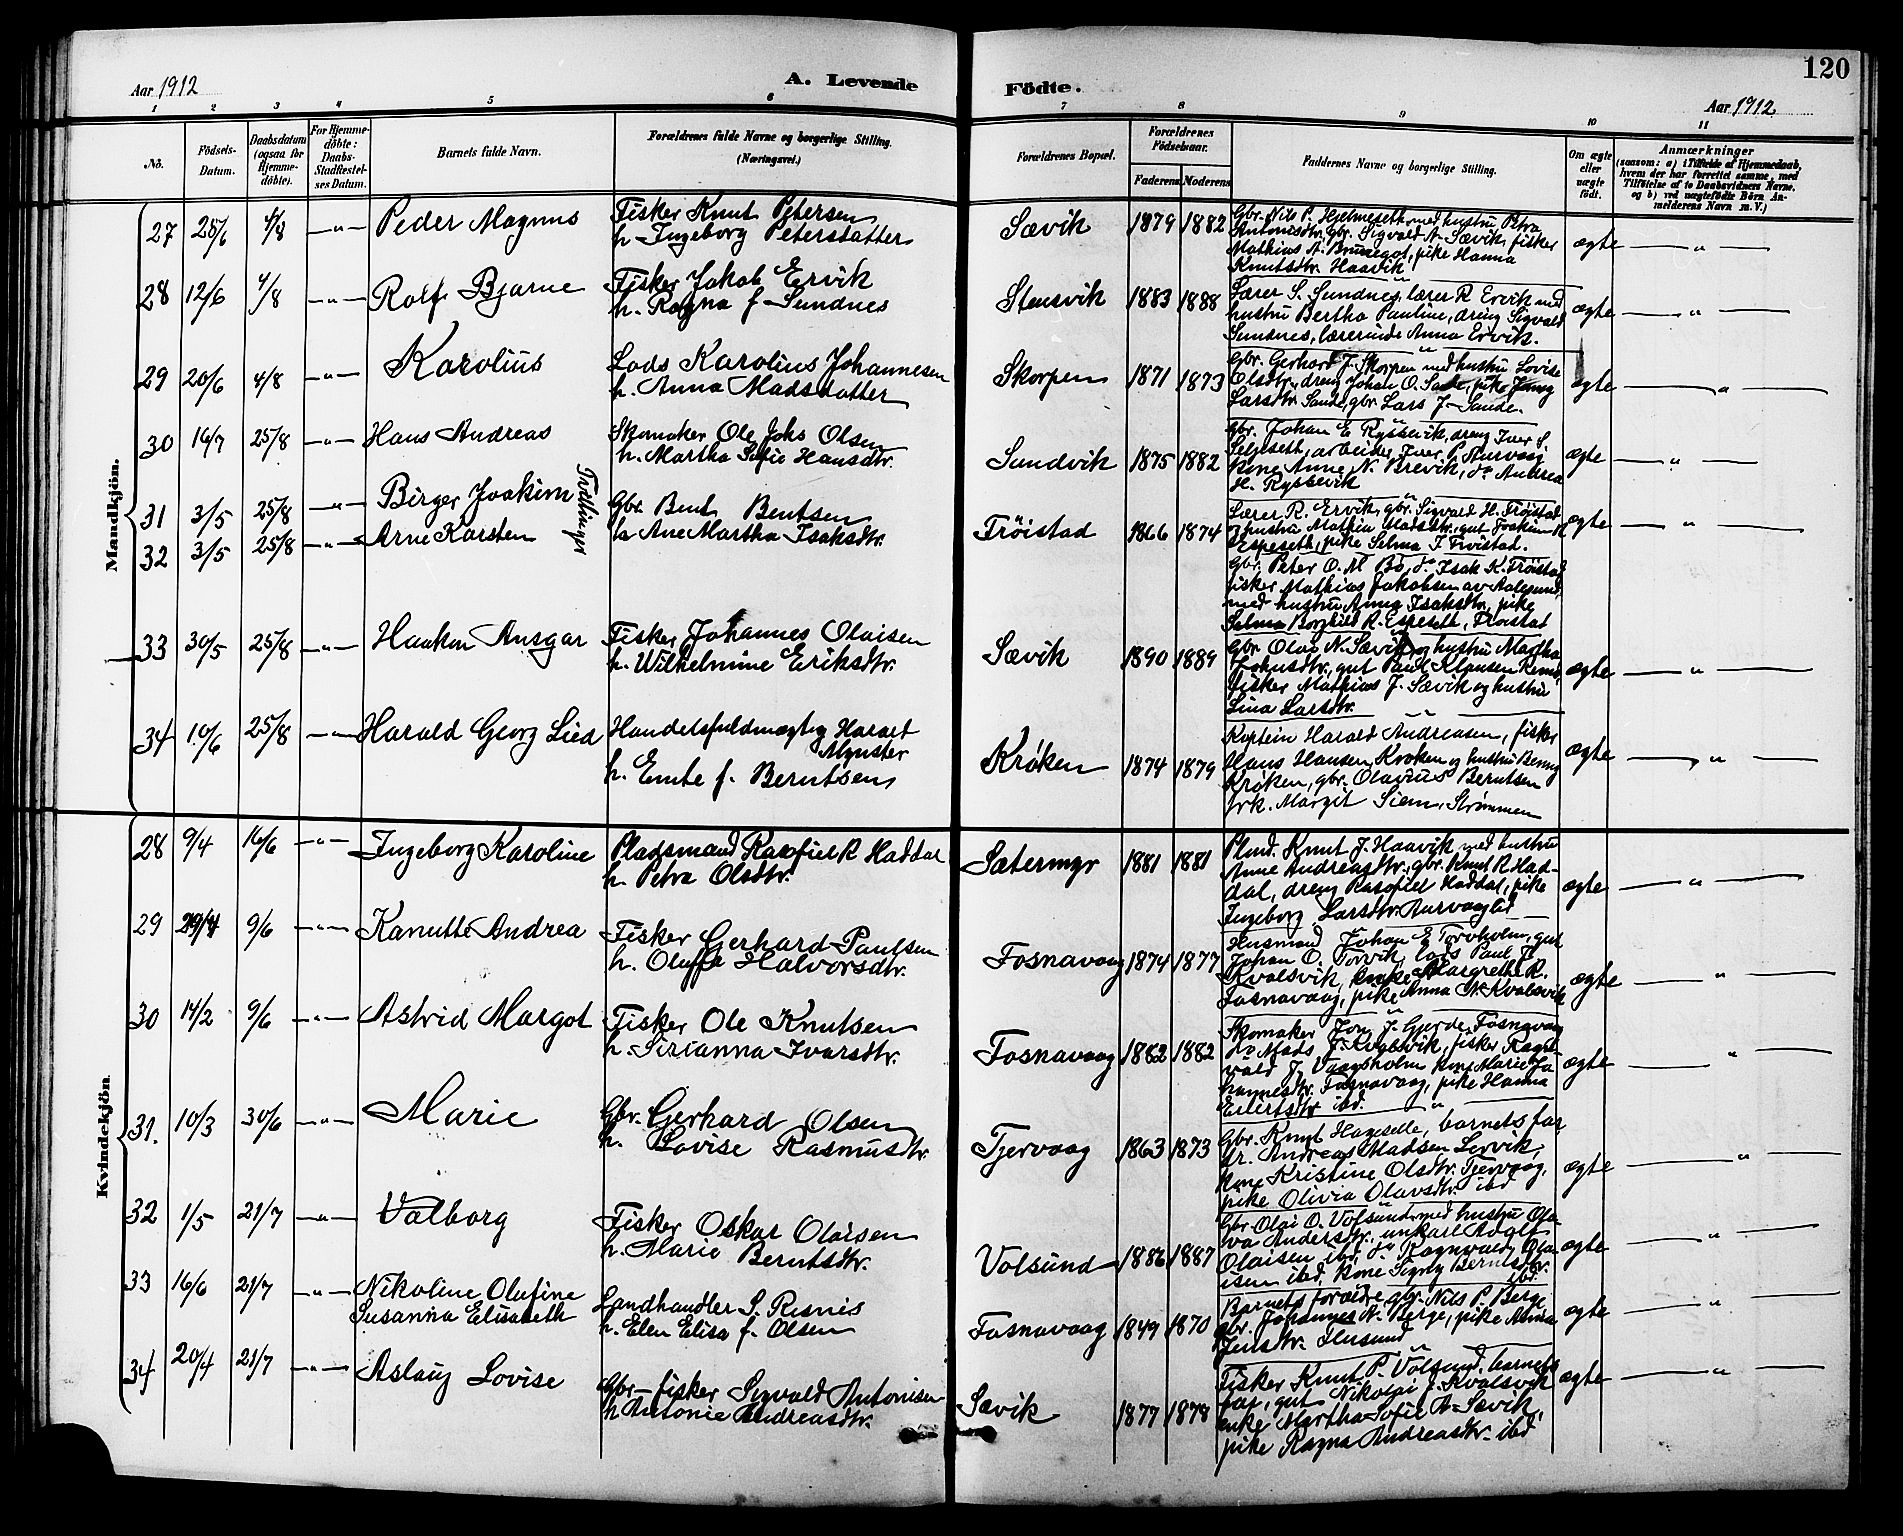 Aar 1912
A. Levende
Födte.
120
Aar 1912
1 2 3 4 5 6 7 8 9 10 11
Nö.
Födsels-Datum.
Daabsdatum (ogsaa for Hjemme-döbte).
For Hjemme-döbte: Daabs-Stadfæstel-ses Datum.
Barnets fulde Navn.
Forældrenes fulde Navne og borgerlige Stilling. (Næringsvei.)
Forældrenes Bopæl.
Forældrenes Födselsaar.
Faderens Moderens
Faddernes Navne og borgerlige Stilling.
Om ægte eller uægte födt.
Anmærkninger
(saasom: a) i Tilfælde af Hjemmedaab,
hvem der har forrettet samme, med
Tilföielse af to Daabsvidners Navne,
og b) ved uægtefödte Börn An-
melderens Navn m. V.)
Mandkjön.
27 25/6 4/8 —"— Peder Magnus
Fisker Knut Petersen
h. Ingeborg Petersdatter
Sævik 1879 1882
Gbr. Nils P. Hjelmeseth med hustru Petra
Antonisdtr, gbr. Sigvald A. Sævik, fisker
Mathias A. Brunegot, pike Hanna
Knutsdtr. Haavik
ægte — " —
28 12/6 4/8 —"— Rolf Bjarne
Fisker Jakob Ervik
h. Ragna f. Sundnes
Stensvik 1883 1888
Lærer S. Sundnes, lærer R. Ervik med
hustru Bertha Pauline, dreng Sigvald
Sundnes, lærerinde Anna Ervik.
ægte — " —
29 20/6 4/8 —"— Karolius
Lods Karolius Johannesen
h. Anna Madsdatter
Skorpen 1871 1873
Gbr. Gerhard J. Skorpen med hustru Lovise
Olsdtr., dreng Johan O. Sande, pike Jenny
Larsdtr. Sande, gbr. Lars J. Sande.
ægte — " —
30 16/7 25/8 —"— Hans Andreas
Skomaker Ole Johs Olsen
h. Martha Sofie Hansdtr.
Sundvik 1875 1882
Gbr. Johan E. Ryssevik, dreng Iver S.
Seljeseth, arbeider Iver P. Aurvaag
kone Anne N. Brevik, do Andrea
H. Ryssevik
ægte — " —
31 3/5 25/8 —"— Birger Joakim
32 3/5 25/8 —"— Arne Karsten
Tvillinger
Gbr. Bent Bentsen
h. Ane Martha Isaksdtr.
Frøistad 1866 1874
Lærer R. Ervik, gbr. Sigvald H. Frøistad
og hustru Mathea Madsdtr, gut Joakim
Espeseth, pike Selma J. Frøistad.
Gbr. Peter O. M. Bø, do Isak K. Frøistad
fisker Mathias Jakobsen av Aalesund,
med hustru Anna Isaksdtr, pike
Selma Borghild R. Espeseth, Frøistad
ægte — " —
33 30/5 25/8 —"— Haakon Ansgar
Fisker Johannes Olaisen
h. Wilhelmine Eriksdtr.
Sævik 1890 1889
Gbr. Olai N. Sævik og hustru Martha
Johnsdtr, gut Paul Klausen Remø,
fisker Mathias J. Sævik og hustru
Lina Larsdtr.
ægte — " —
34 10/6 25/8 —"— Harald Georg Lied
Handelsfuldmægtig Harald
Mynster
h. Emte f. Berntsen
Krøken 1874 1879
Kaptein Harald Andreasen, fisker
Hans Hansen Krøken og hustru Benny
Krøken, gbr. Olavius Berntsen
frk. Margit Siem, Strømmen
ægte — " —
Kvindekjön.
28 9/4 16/6 —"— Ingeborg Karoline
Pladsmand Rasofiel R. Haddal
h. Petra Olsdtr.
Sætermyr 1881 1881
Plmd. Knut J. Haavik med hustru
Anne Andreasdtr, gbr. Knut R. Had-
dal, dreng Rasofiel Haddal, pike
Ingeborg Larsdtr. Aurvaaglid
ægte — " —
29 29/4 9/6 —"— Kanutte Andrea
Fisker Gerhard Paulsen
h. Oluffa Halvorsdtr.
Fosnavaag 1874 1877
Husmand Johan E. Torvholm, gut
Johan O. Torvik, lods Paul J.
Kvalsvik, enke Margrethe R.
Fosnavaag, pike Anna N. Kvalsvik
ægte — " —
30 14/2 9/6 —"— Astrid Margot
Fisker Ole Knutsen
h. Sirianna Ivarsdtr.
Fosnavaag 1882 1882
Skomaker Jon J. Gjerde, Fosnavaag
do Mads J. Kvalsvik, fisker Ragn-
vald J. Vaagsholm kone Marie Jo-
hannesdtr. Fosnavaag, pike Hanna
Eilertsdtr ibd.
ægte — " —
31. 10/3 30/6 —"— Marie
Gbr. Gerhard Olsen
h. Lovise Rasmusdtr.
Tjervaag 1863 1873
Gbr. Knut Hageselle, barnets far,
gbr. Andreas Madsen Lervik,
kone Kristine Olsdtr. Tjervaag,
pike Olivia Olavsdtr. ibd
ægte — " —
32 1/5 21/7 —"— Valborg
Fisker Oskar Olaisen
h. Marie Berntsdtr.
Volsund 1886 1887
Gbr. Olai O. Volsund med hustru Ola-
va Andersdtr, unkarl Adolf
Olaisen ibd, do Ragnvald Ola-
isen ibd, kone Signy Berntsdtr.
ibd.
ægte — " —
33 16/6 21/7 —"— Nikoline Olufine
Susanna Elisabeth
Landhandler S. Resnis
h. Elen Elisa f. Olsen
Fosnavaag 1849 1870
Barnets forældre, gbr. Nils P. Berge
gbr. Johannes A. Berge, pike Alvina
Jensdtr. Ilusund
ægte — " —
34 20/4 21/7 —"— Aslaug Lovise
Gbr-fisker Sigvald Antonisen
h Antonie Andreasdtr.
Sævik 1877 1878
Fisker Knut P. Volsund, barnets
far, gut Nikolai J. Kvalsvik
enke Martha Sofie A. Sævik,
pike Ragna Andreasdtr. ibd
ægte — " —